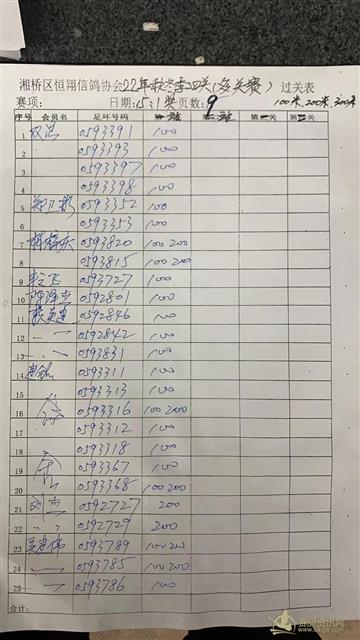 湘桥区恒翔信鸽协会22年秋冬季四关(多关赛)过关表
赛项: 日期:5:1奖 页数:9 100米,200米,300米
序号 会员名 足环号码 第一关 第二关 第三关 第四关
1 0593391 100
2 0593393 100
3 0593397 100
4 0593398 100
5 郑卫彬 0593352 100
6 0593353 100
7 0593820 100 200
8 0593815 100 200
9 0593727 100
10 0592801 100
11 0592846 100
12 0592842 100
13 0593831 100
14 0593311 100
15 0593313 100
16 0593316 100 200
17 0593312 100
18 0593318 100
19 0593367 100
20 0593368 100 200
21 0592727 200
22 0592729 200
23 0593789 100 200
24 0593785 100 200
25 0593786 100
合计: